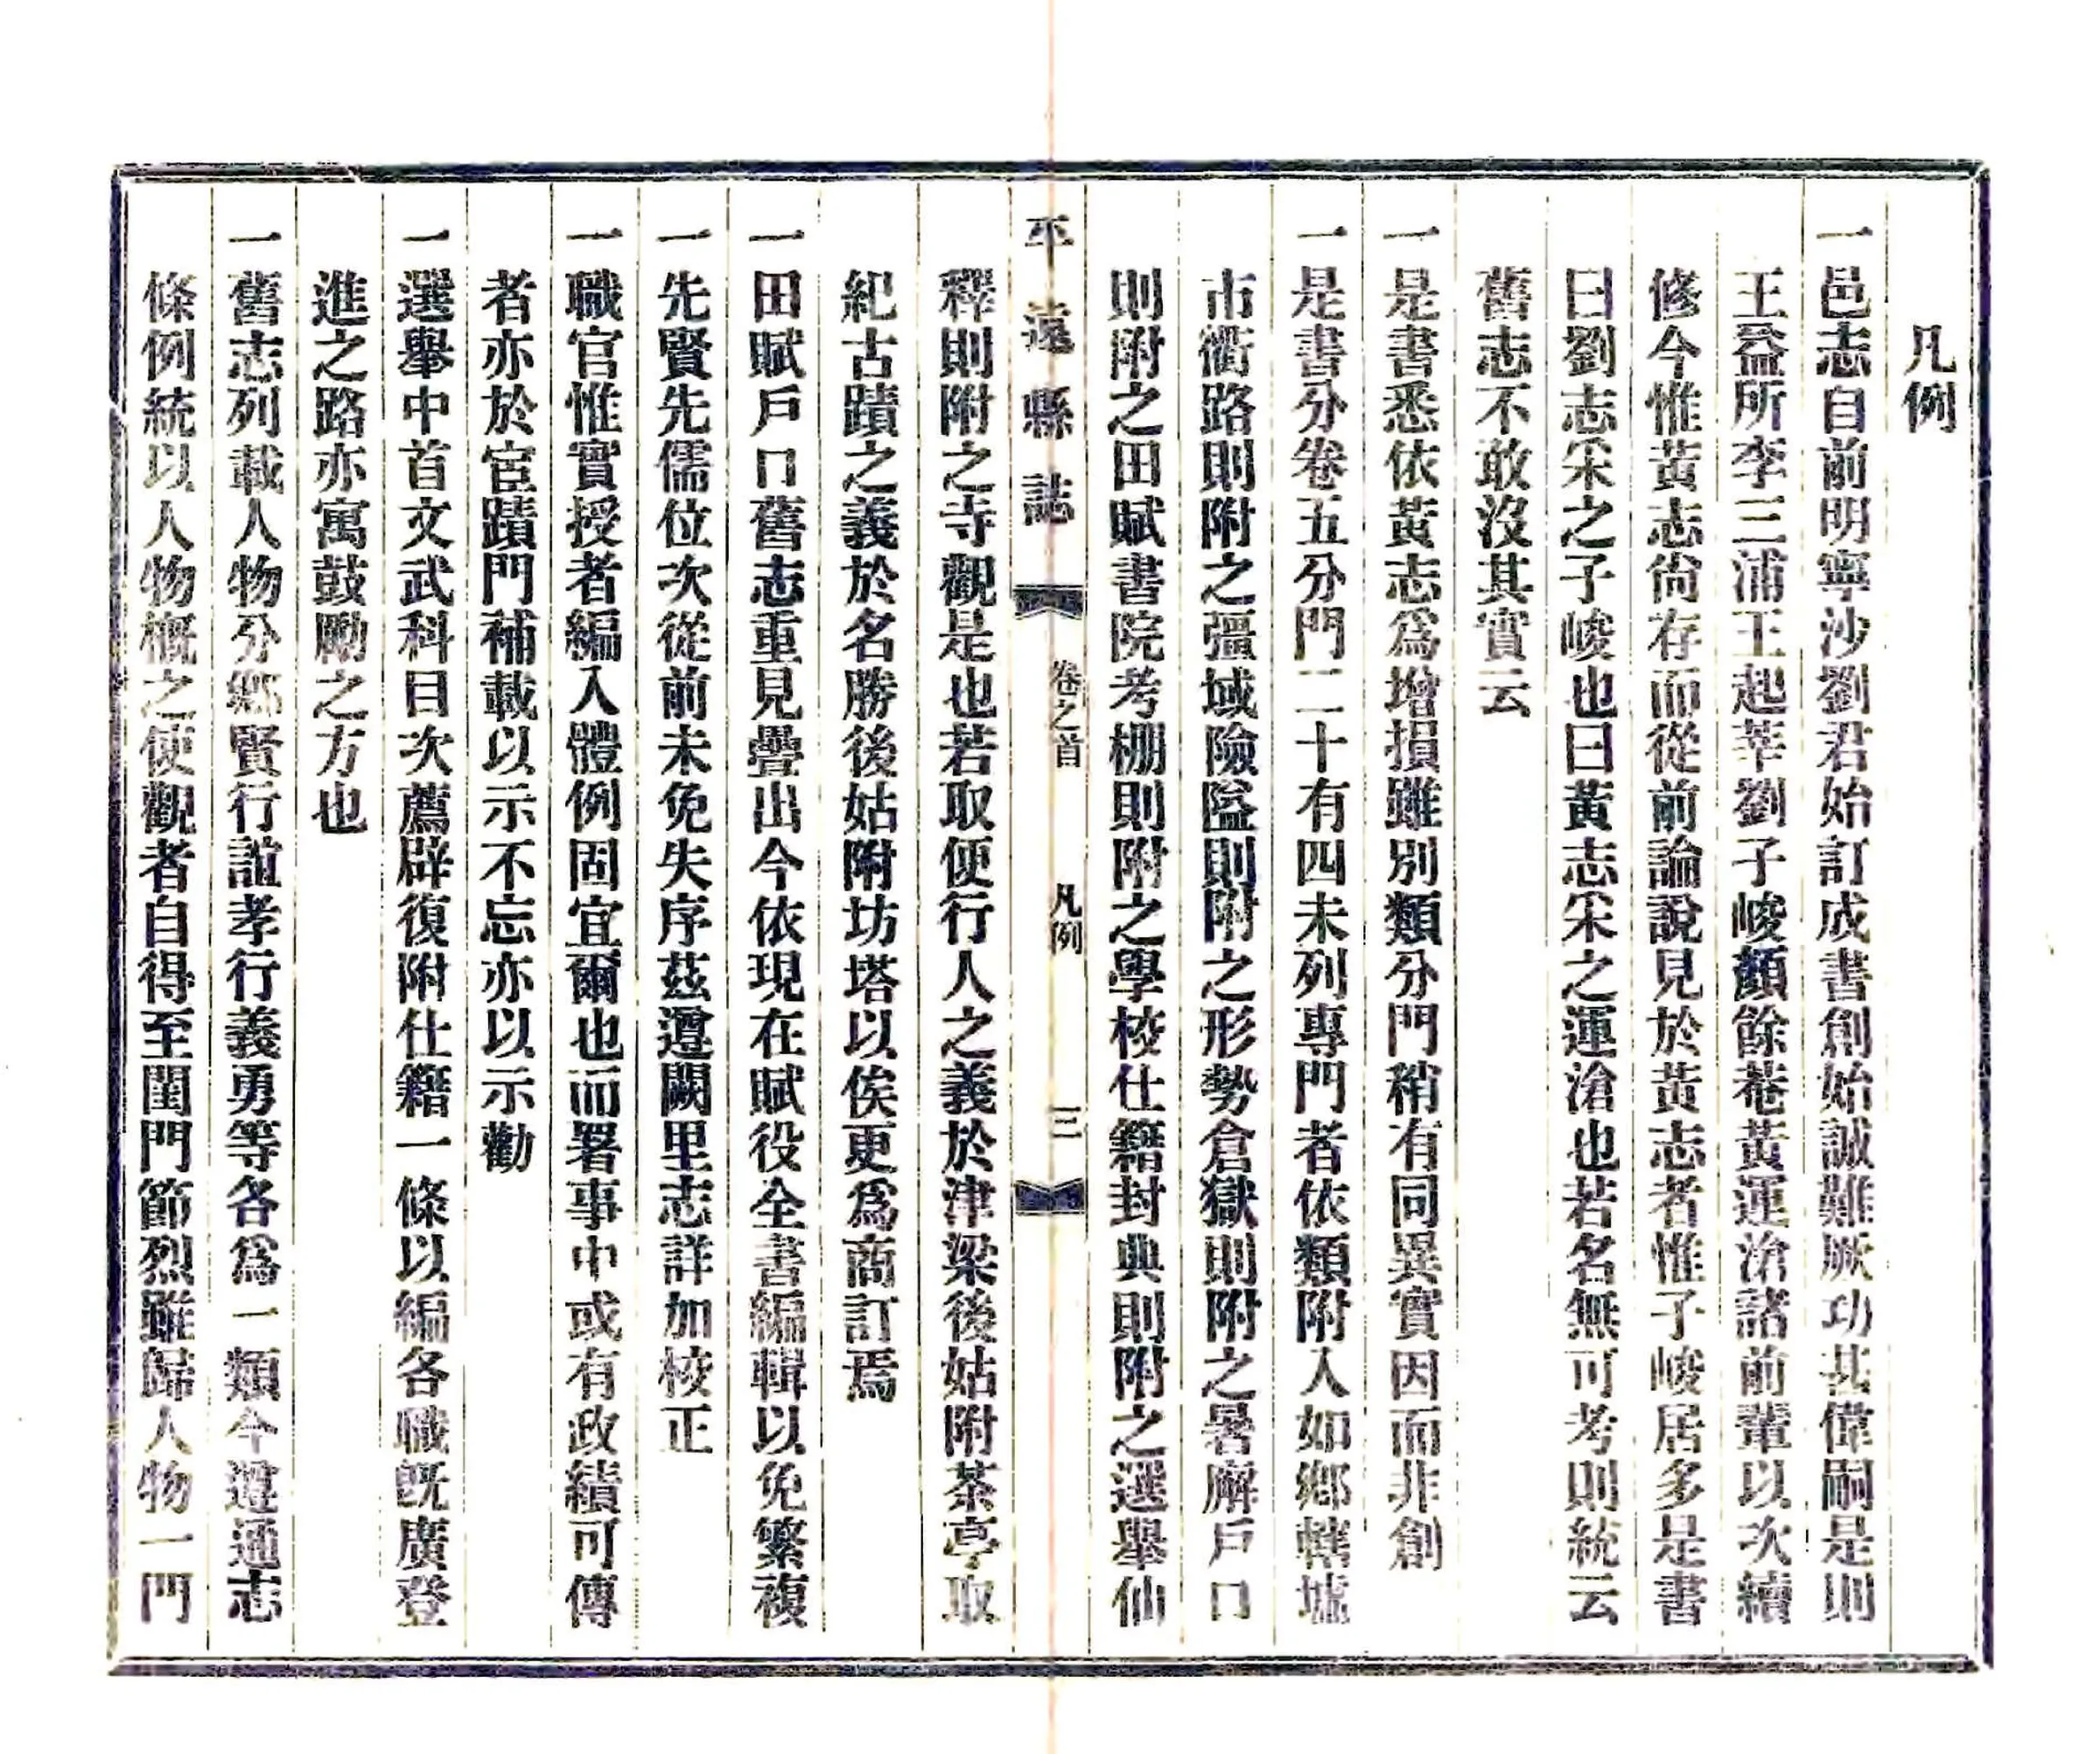 凡例
一邑志自前明寧沙劉君始訂成書創始誠難厥功甚偉嗣是則
王益所李三浦王起莘劉子峻顏餘菴黃運滄諸前輩以次續
修今惟黃志尙存而從前論說見於黃志者惟子峻居多是書
曰劉志采之子峻也曰黃志采之運滄也若名無可考則統云
舊志不敢沒其實云
一是書悉依黃志爲增損雖別類分門稍有同異實因而非創
一是書分卷五分門二十有四未列專門者依類附入如鄉轄墟
市衢路則附之彊域險隘則附之形勢倉獄則附之署廨戶口
則附之田賦書院考棚則附之學校仕籍封典則附之選舉仙
平遠縣誌
卷之首
凡例
三
釋則附之寺觀是也若取便行人之義於津梁後姑附茶亭取
紀古蹟之義於名勝後姑附坊塔以俟更爲商訂焉
一田賦戶口舊志重見疊出今依現在賦役全書編輯以免繁複
一先賢先儒位次從前未免失序茲遵闕里志詳加校正
一職官惟實授者編入體例固宜爾也而署事中或有政績可傳
者亦於宦蹟門補載以示不忘亦以示勸
一選舉中首文武科目次薦辟復附仕籍一條以編各職旣廣登
進之路亦寓鼓勵之方也
一舊志列載人物分鄉賢行誼孝行義勇等各爲一類今遵通志
條例統以人物槪之使觀者自得至閨門節烈雖歸人物一門